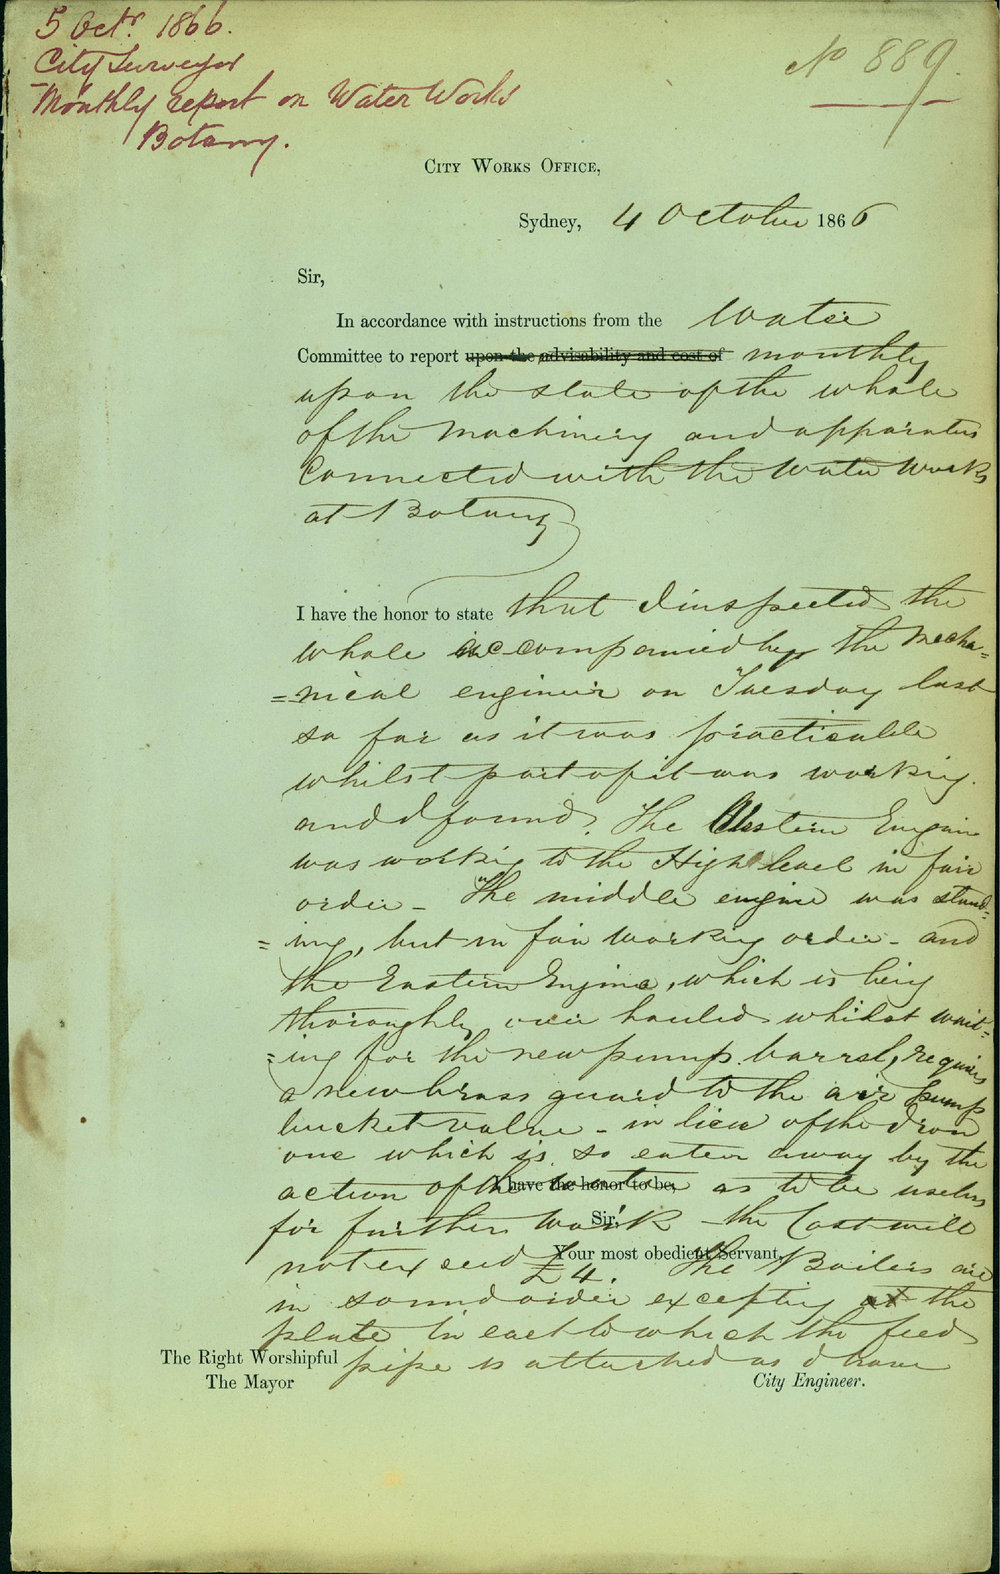 5 Octr. 1866.
City Surveyor
Monthly report on Water Works
Botany.
No 889.
City Works Office,
Sydney, 4 October 1866
Sir,
In accordance with instructions from the Water
Committee to report upon the advisability and cost of monthly
upon the state of the whole
of the Machinery and apparatus
Connected with the Water Works
at Botany
I have the honor to state that I inspected the
whole accompanied by the Mecha=
=nical engineer on Tuesday last
so far as it was practicable
whilst part of it was working.
and I found. The Western Engine
was working to the High level in fair
order - The middle engine was stand=
=ing, but in fair working order - and
the Eastern Engine, which is being
thoroughly over hauled whilst wait=
=ing for the new pump barrel, requires
a new brass guard to the air pump
bucket valve - in lieu of the Iron
one which is so eaten away by the
action of the water as to be useless
I have the honor to be,
for further work - the Cost will
Sir,
not exceed £4. The Boilers are
Your most obedient Servant,
in sound order excepting at the
plate in each to which the feed
The Right Worshipful pipe is attached as I have
The Mayor
City Engineer.